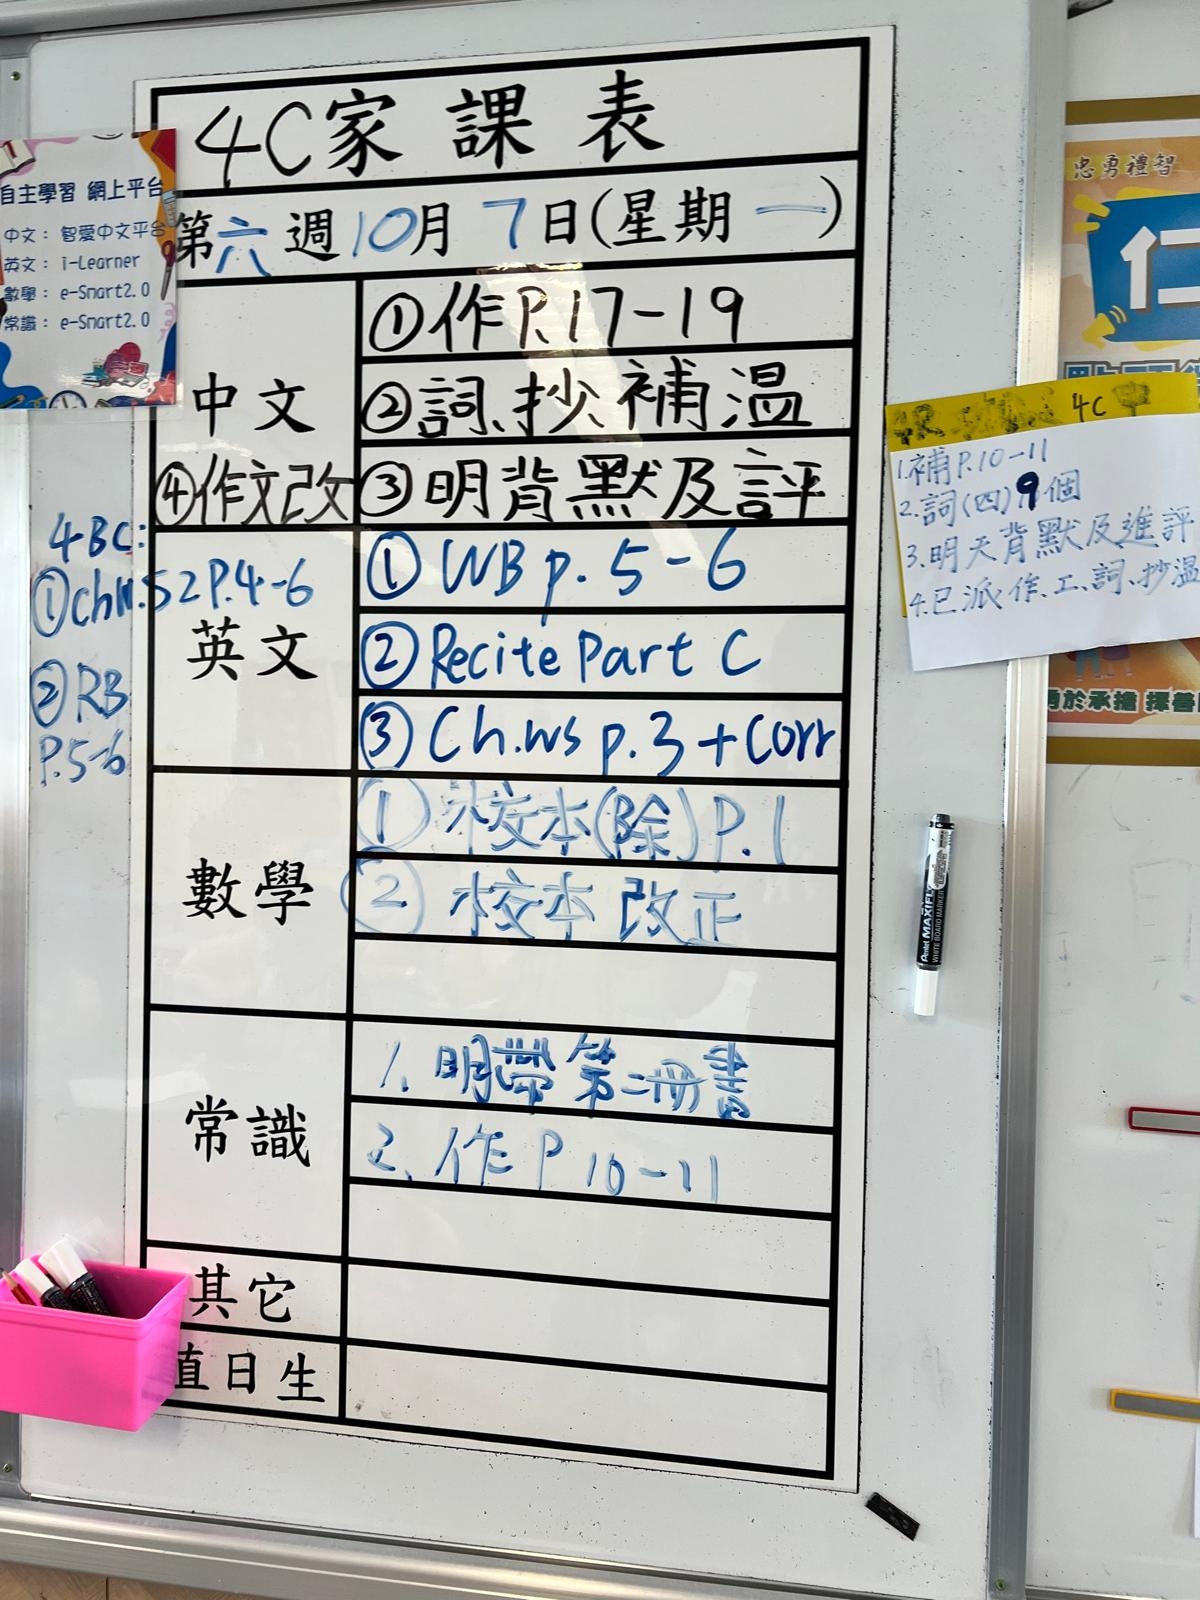 4C家課表
第六週10月7日(星期一)
中文
①作P.17-19
②詞、抄、補、溫
③明背默及評
④作文改
英文
①WB p. 5-6
②Recite Part C
③Ch.ws p.3 + Corr
4BC:
①Ch.W.S2 P.4-6
②RB
P.5-6
數學
①校本(除)P.1
②校本改正
常識
1. 明帶第二冊書
2、作P 10-11
其它
直日生
自主學習 網上平台
中文: 智愛中文平台
英文: i-Learner
數學: e-Smart2.0
常識: e-Smart2.0
4C 中
1.補P.10-11
2.詞(四)9個
3.明天背默及進評
4.已派作、工、詞、抄、溫
忠勇禮智
仁
勇於承擔 擇善
Pentel MAXIFLO
WHITE BOARD MARKER